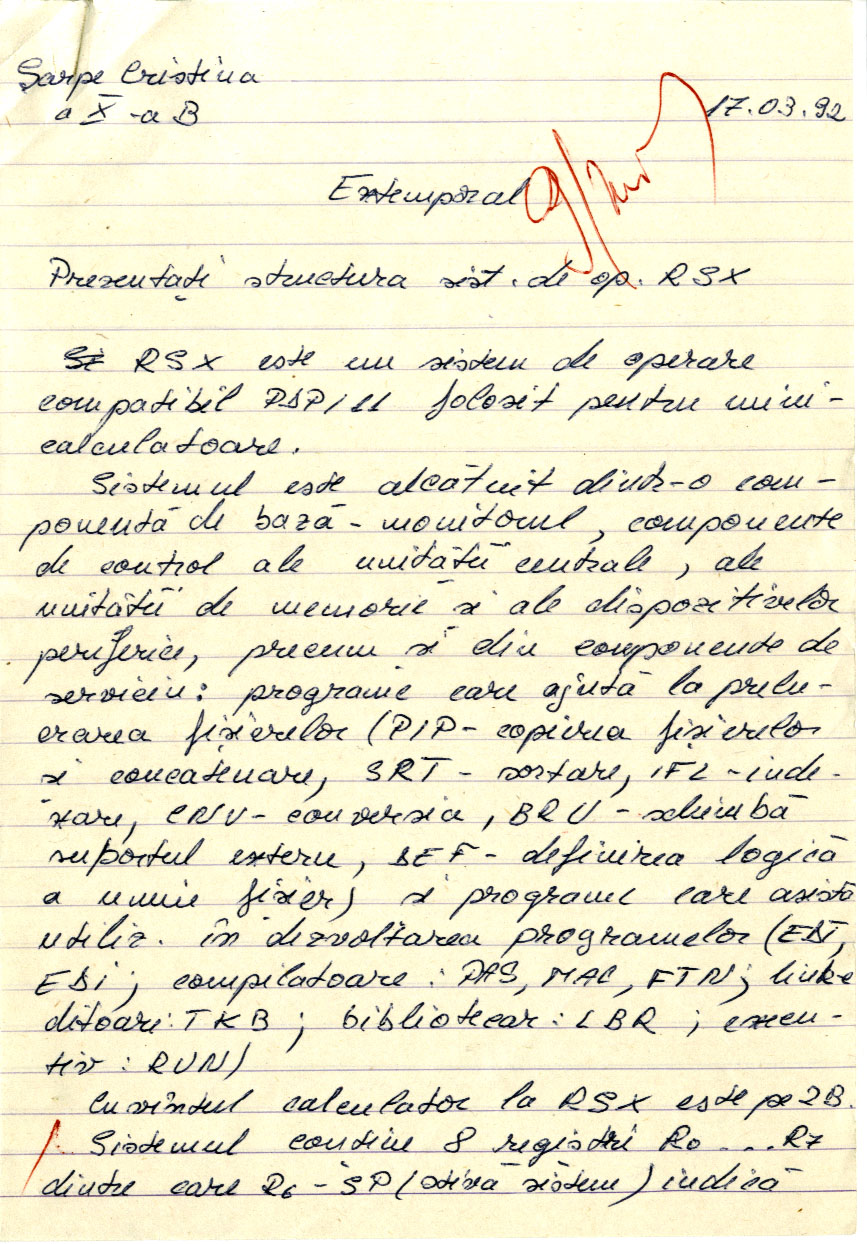 Sarpe Cristina
a X-a B
17.03.92
Extemporal
9/
Prezentaţi structura sist. de op. RSX
RSX este un sistem de operare
compatibil PDP/11 folosit pentru mini-
calculatoare.
Sistemul este alcătuit dintr-o com-
ponentă de bază - monitorul, componente
de control ale unităţii centrale, ale
unităţii de memorie şi ale dispozitivelor
periferice, precum şi din componente de
serviciu: programe care ajută la prelu-
crarea fişierelor (PIP- copierea fişierelor
şi concatenare, SRT - sortare, IFL - inde-
xare, CNV- conversia, BRU - schimbă
suportul extern, DEF - definirea logică
a unui fişier) şi programe care asistă
utiliz. în dezvoltarea programelor (EDT,
EDI; compilatoare: PAS, MAC, FTN; linke
ditoari: TKB; bibliotecar: LBR; execu-
tiv: RUN)
Cuvîntul calculator la RSX este pe 2B.
Sistemul contine 8 registri R0 ... R7
dintre care R6 - SP (stivă sistem) indică